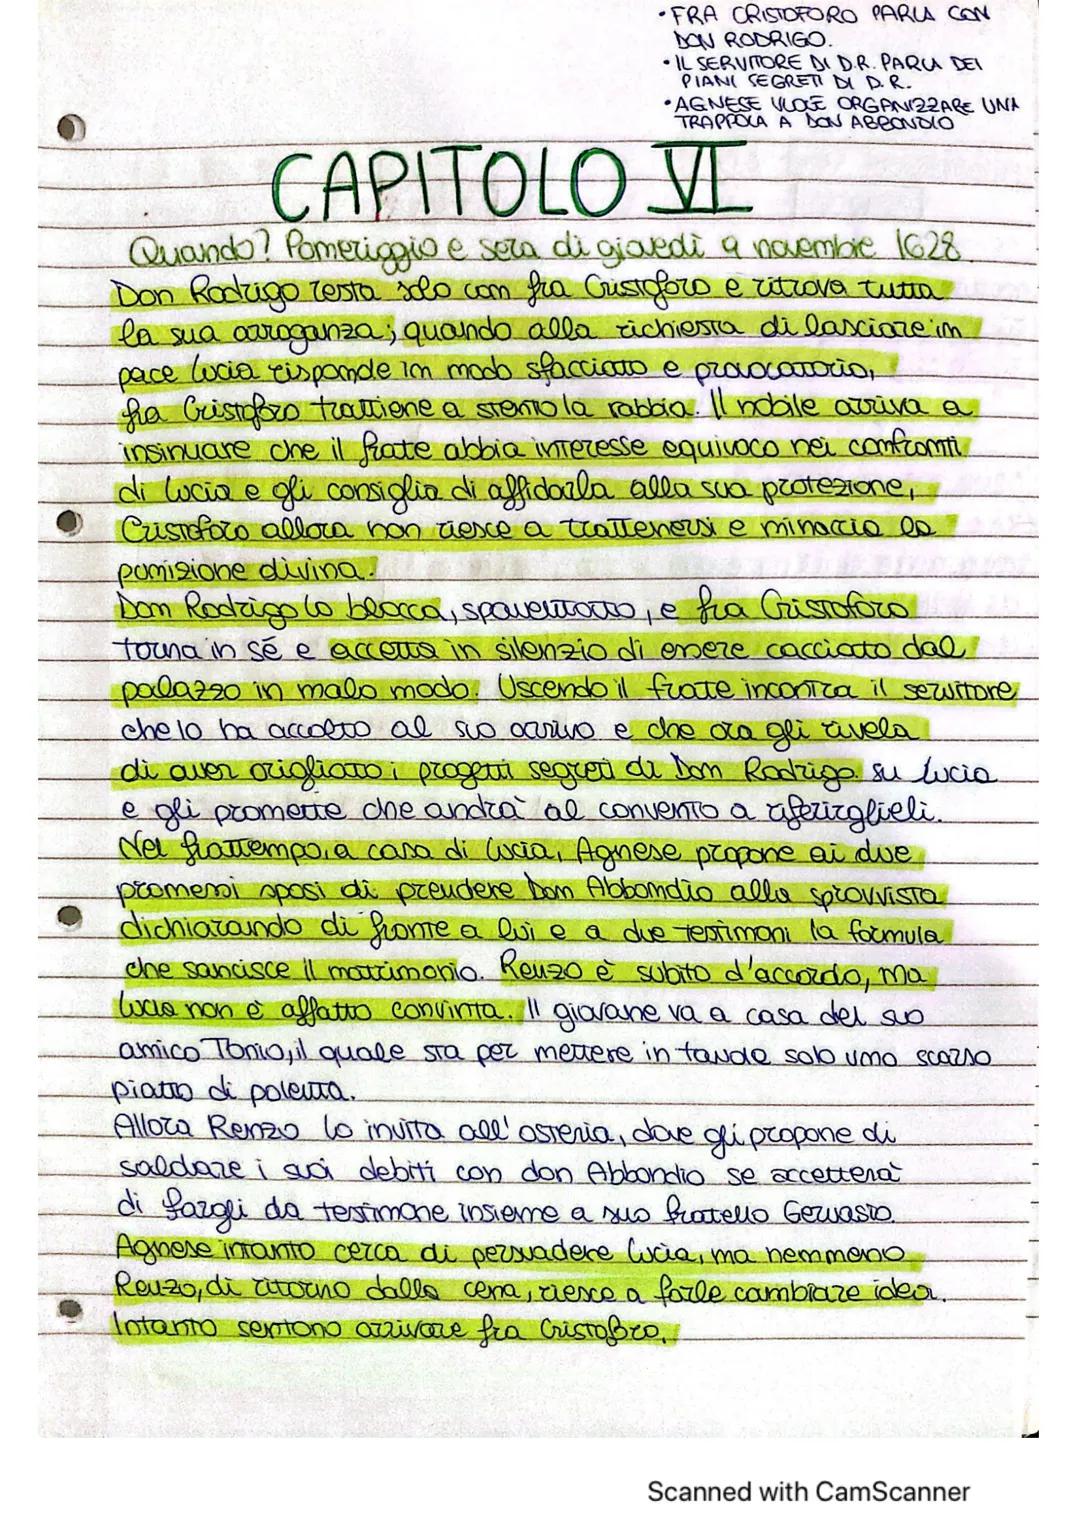 • FRA CRISTOFORO PARLA CON
DON RODRIGO.
• IL SERVITORE DI D.R. PARLA DEI
PIANI SEGRETI DI D.R.
• AGNESE VUOLE ORGANIZZARE UNA
TRAPPOLA A DON ABBONDIO
CAPITOLO VI
Quando? Pomeriggio e sera di giovedì 9 novembre 1628
Don Rodrigo resta solo con fra Cristoforo e ritrova tutta
la sua arroganza; quando alla richiesta di lasciare in
pace Lucia risponde in modo sfacciato e provocatorio,
fra Cristoforo trattiene a stento la rabbia. Il nobile arriva a
insinuare che il frate abbia interesse equivoco nei confronti
di Lucia e gli consiglia di affidarla alla sua protezione,
Cristoforo allora non riesce a trattenersi e minaccia la
punizione divina.
Don Rodrigo lo blocca, spaventato, e fra Cristoforo
torna in sé e accetta in silenzio di essere cacciato dal
palazzo in malo modo. Uscendo il frate incontra il servitore
che lo ha accolto al suo arrivo e che ora gli rivela
di aver origliato i progetti segreti di Don Rodrigo su Lucia
e gli promette che andrà al convento a riferirglieli.
Nel frattempo, a casa di Lucia, Agnese propone ai due
promessi sposi di prendere Don Abbondio alla sprovvista
dichiarando di fronte a lui e a due testimoni la formula
che sancisce il matrimonio. Renzo è subito d'accordo, ma
Lucia non è affatto convinta. Il giovane va a casa del suo
amico Tonio, il quale sta per mettere in tavola solo uno scarso
piatto di polenta.
Allora Renzo lo invita all'osteria, dove gli propone di
saldare i suoi debiti con don Abbondio se accetterà
di fargli da testimone insieme a suo fratello Gervasio.
Agnese intanto cerca di persuadere Lucia, ma nemmeno
Renzo, di ritorno dalla cena, riesce a farle cambiare idea.
Intanto sentono arrivare fra Cristoforo.
Scanned with CamScanner